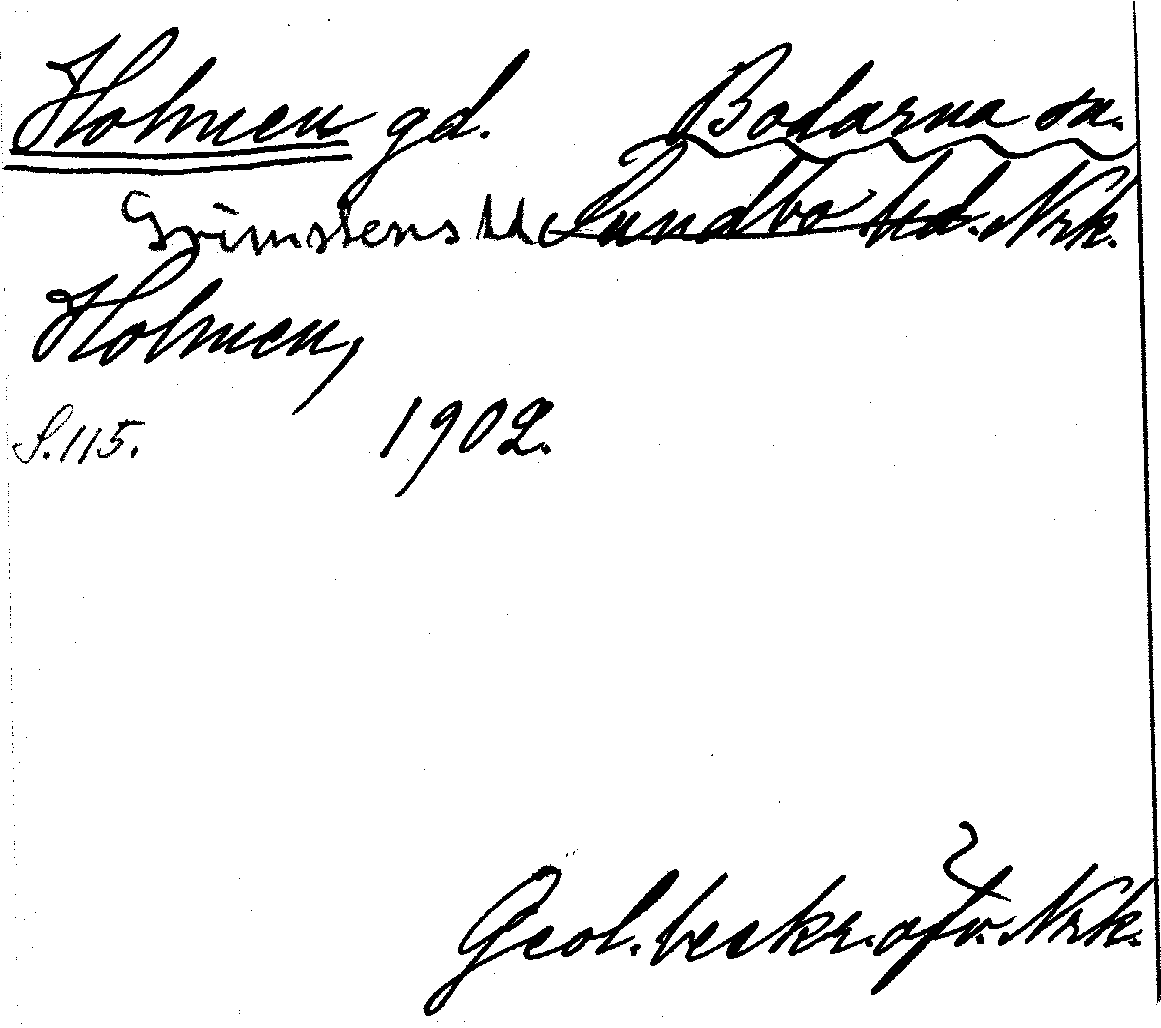 Holmen gd. Bodarna sn.
Grimstens hd Sundbo hd. Nrk.
Holmen,
S. 115. 1902.
Geol. beskr. öfv. Nrk.